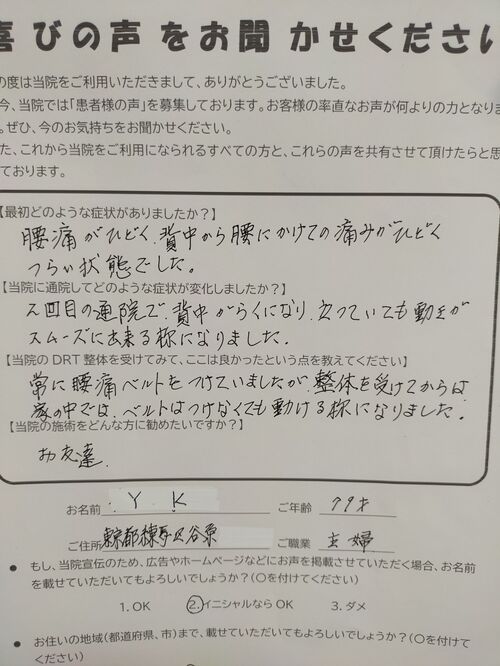 喜びの声をお聞かせください
の度は当院をご利用いただきまして、ありがとうございました。
今、当院では「患者様の声」を募集しております。お客様の率直なお声が何よりの力となりま
。ぜひ、今のお気持ちをお聞かせください。
た、これから当院をご利用になられるすべての方と、これらの声を共有させて頂けたらと思
ております。
【最初どのような症状がありましたか？】
腰痛がひどく、背中から腰にかけての痛みがひどく
つらい状態でした。
【当院に通院してどのような症状が変化しましたか？】
2回目の通院で、背中がらくになり、立っていても動きが
スムーズに出来る様になりました。
【当院のDRT整体を受けてみて、ここは良かったという点を教えてください】
常に腰痛ベルトをつけていましたが、整体を受けてからは
家の中では、ベルトはつけなくても動ける様になりました。
【当院の施術をどんな方に勧めたいですか？】
お友達
お名前 Y K ご年齢 79才
ご住所 東京都練馬区谷原 ご職業 主婦
● もし、当院宣伝のため、広告やホームページなどにお声を掲載させていただく場合、お名前
を載せていただいてもよろしいでしょうか？（〇を付けてください）
1. OK 2. イニシャルなら OK 3. ダメ
● お住いの地域（都道府県、市）まで、載せていただいてもよろしいでしょうか？（〇を付けて
ください）